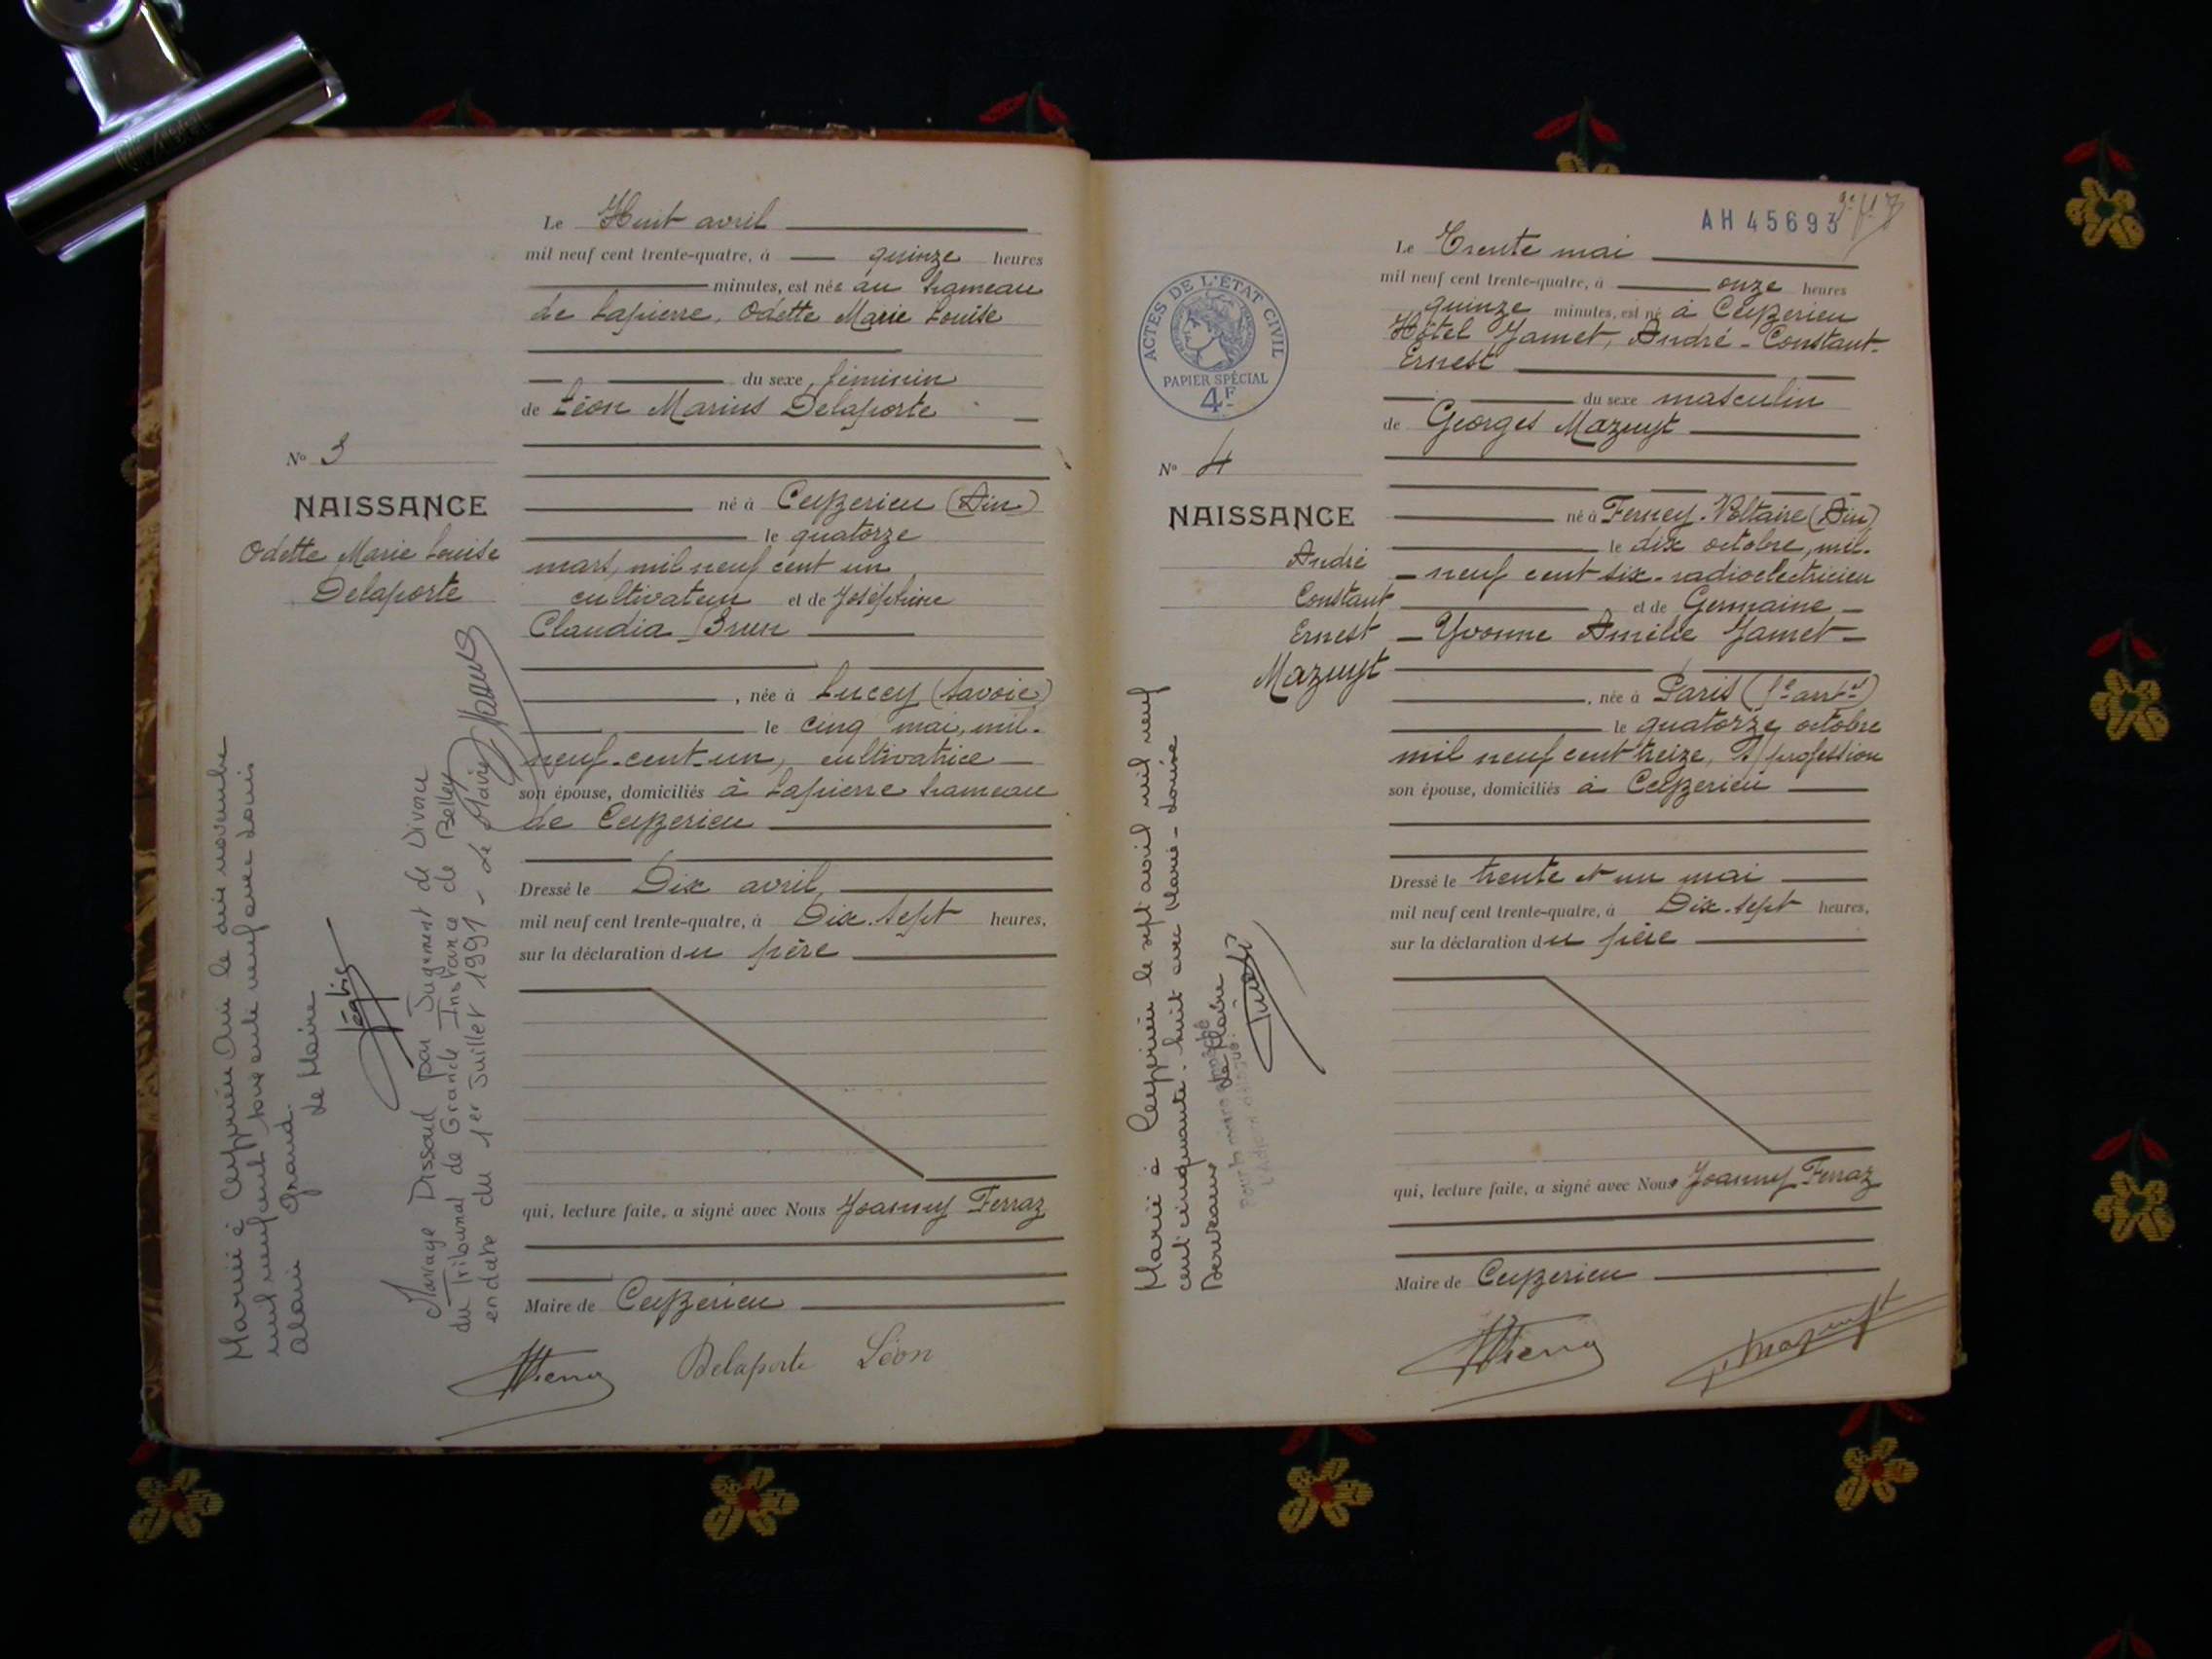 Le Huit avril
mil neuf cent trente-quatre, à quinze heures
minutes, est née au hameau
de Lapierre, Odette Marie Louise
du sexe féminin
de Léon Marius Delaporte
né à Ceyzerieu (Ain)
le quatorze
mars, mil neuf cent un
cultivateur et de Joséphine
Claudia Brun
, née à Lucey (Savoie)
le cinq mai, mil-
neuf-cent-un, cultivatrice
son épouse, domiciliés à Lapierre hameau
de Ceyzerieu
Dressé le Dix avril,
mil neuf cent trente-quatre, à Dix-sept heures,
sur la déclaration du père
qui, lecture faite, a signé avec Nous Joanny Ferraz
Maire de Ceyzerieu
Delaporte Léon
No 3
NAISSANCE
Odette Marie Louise
Delaporte
Marié à Ceyzerieu Ain le dix novembre
mil neuf cent avec Louis
Alain Grand.
Le Maire
Mariage Dissout par Jugement de Divorce
du Tribunal de Grande Instance de Belley
en date du 1er Juillet 1991 - Le Maire
AH 45693
Le Trente mai
mil neuf cent trente-quatre, à onze heures
quinze minutes, est né à Ceyzerieu
Hôtel Jamet, André-Constant-
Ernest
du sexe masculin
de Georges Mazuyt
né à Ferney-Voltaire (Ain)
le dix octobre, mil-
neuf cent six, radioélectricien
et de Germaine
Yvonne Amélie Jamet
, née à Paris
le quatorze octobre
mil neuf cent treize, profession
son épouse, domiciliés à Ceyzerieu
Dressé le trente et un mai
mil neuf cent trente-quatre, à Dix-sept heures,
sur la déclaration du père
qui, lecture faite, a signé avec Nous Joanny Ferraz
Maire de Ceyzerieu
Mazuyt
ACTES DE L'ÉTAT CIVIL
PAPIER SPÉCIAL
4F
No 4
NAISSANCE
André
Constant
Ernest
Mazuyt
Marié à Ceyzerieu le sept avril mil neuf
cent cinquante-huit avec Marie-Louise
Le Maire